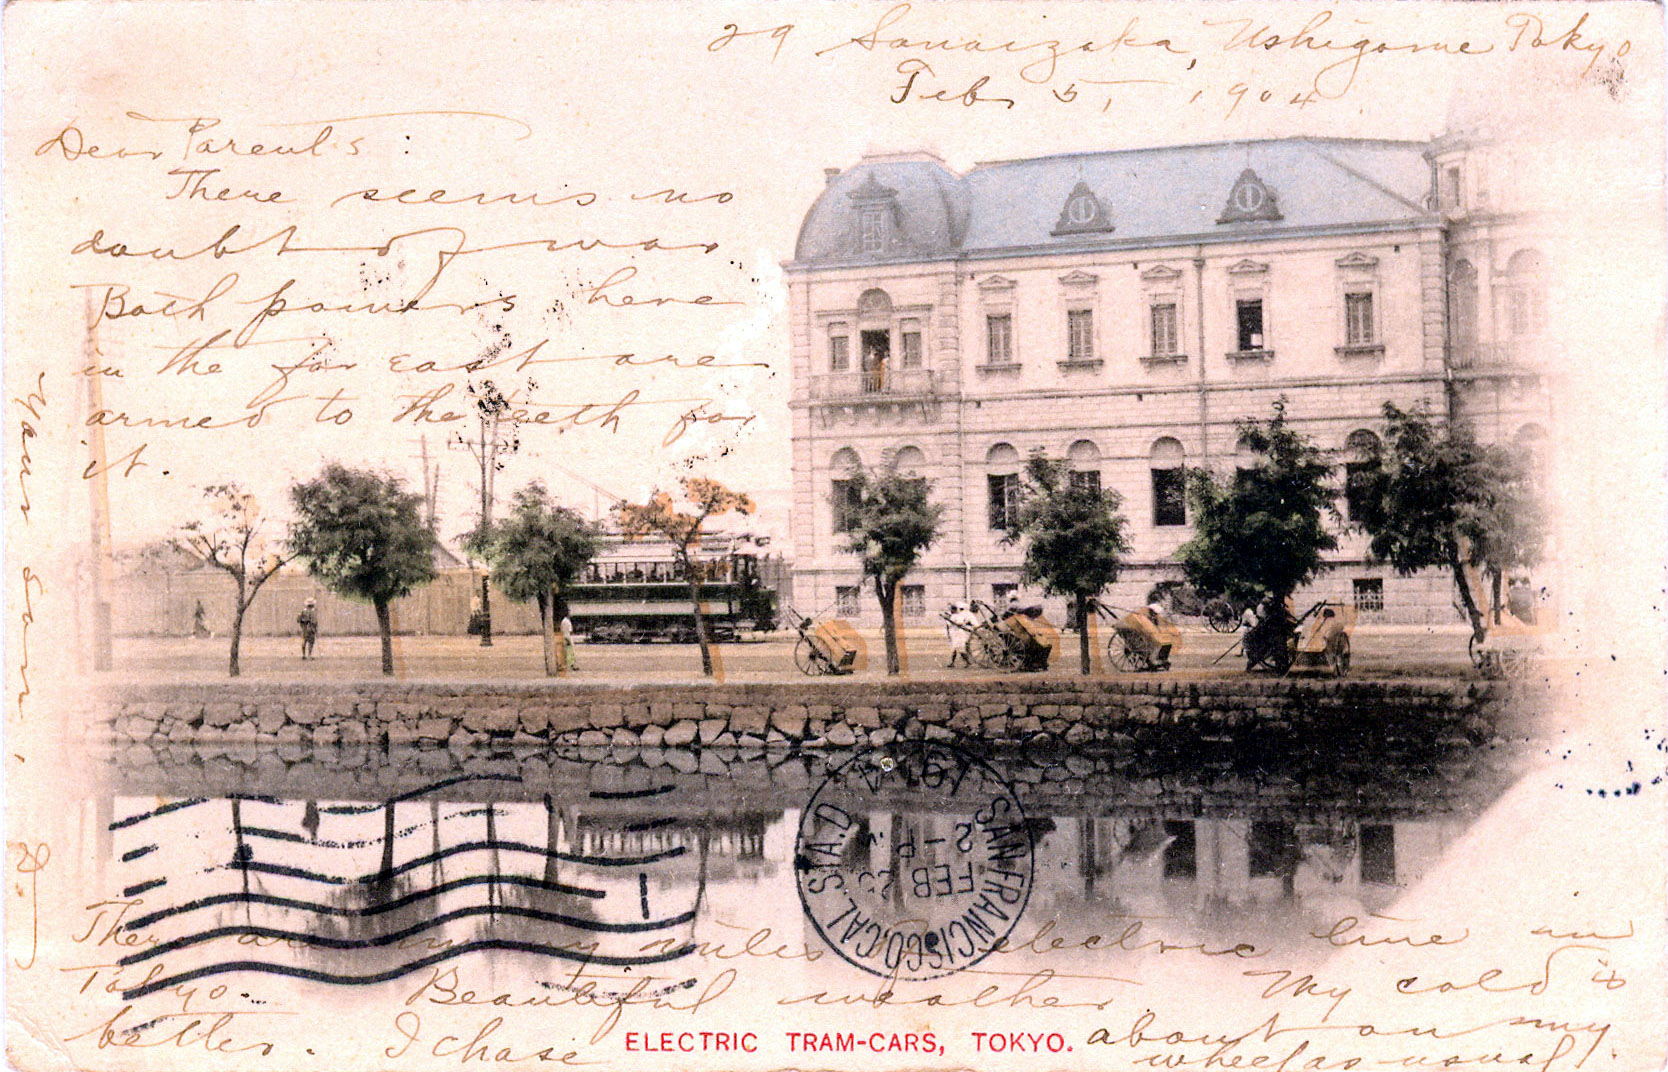 29 Sanaizaka, Ushigome Tokyo
Feb 5, 1904
Dear Parents:
There seems no
doubt of war.
Both powers here
in the far east are
armed to the teeth for
it.
Your son, D.
There are many miles of electric line in
Tokyo. Beautiful weather. My cold is
better. I chase about on my
wheel as usual.
ELECTRIC TRAM-CARS, TOKYO.
SAN FRANCISCO, CAL. STA. D
FEB 23
2-P
1904